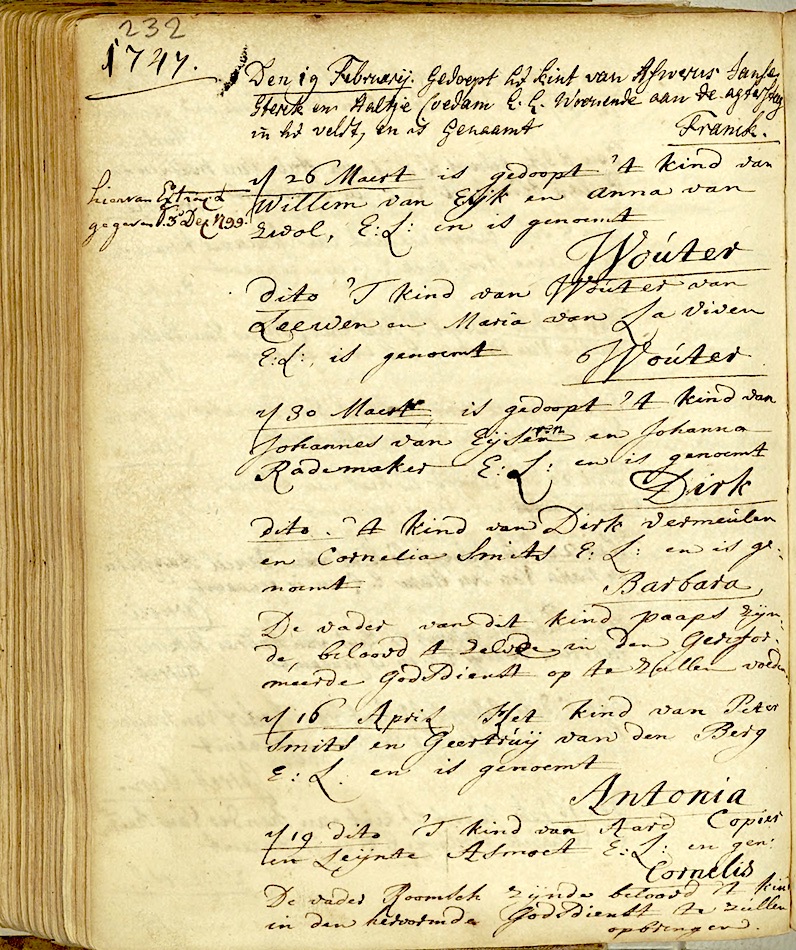 232
1747.
Den 19 February. Gedoopt het kint van Aswerus Janse
Sterk en Aaltje E. L. Woonende aan de
in het veldt, en is Genaamt Franck.
hiervan Extract
gegeven d. 3 Dec 1799.
d 26 Maert is gedoopt 't kind van
Willem van Eyk en anna van
zwol, E: L: en is genoemt
Woúter
dito 'T kind van Woúter van
Leeuwen en Maria van La Viven
E: L:, is genoemt Woúter
d 30 Maert, is gedoopt 't kind van
Johannes van en Johanna
Rademaker E: L: en is genoemt
Dirk
dito. 't kind van Dirk vermeúlen
en Cornelia Smits E: L: en is ge-
noemt Barbara
De vader van dit kind paaps zijn-
de beloovd 't zelve in den Gerefor-
meerde Godsdienst op te zúllen voeden
d 16 April Het kind van Peter
Smits en Geertrúij van den Berg
E: L. en is genoemt
Antonia
d 19 dito 'T kind van Aard Copier
en Leijntie Asmoet E: L: en gen:
Cornelis
De vader Roomsch zijnde beloovd 't kin
in den hervormde Godsdienst te zúllen
opbrengen.